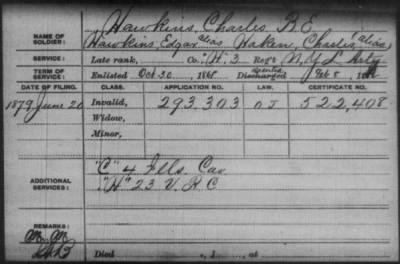 Hawkins, Charles B. E.
NAME OF SOLDIER: Hawkins, Edgar alias Haken, Charles, (alias)
SERVICE: Late rank, Co. "H". 3 Reg't N.Y. L. Arty
TERM OF SERVICE: Enlisted Oct 30, 1861 Discharged Feb 8, 18
DATE OF FILING. CLASS. APPLICATION NO. LAW. CERTIFICATE NO.
1879 June 20 Invalid, 293,303 522,408
Widow,
Minor,
ADDITIONAL SERVICES: "C" 4 Ills. Cav
"H" 23 V. R. C
REMARKS:
Died , 1 , at